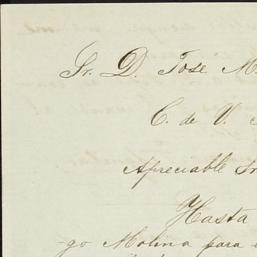 Sr. D. Jose M.
C. de V.
Apreciable Sr
Hasta
go Molina para